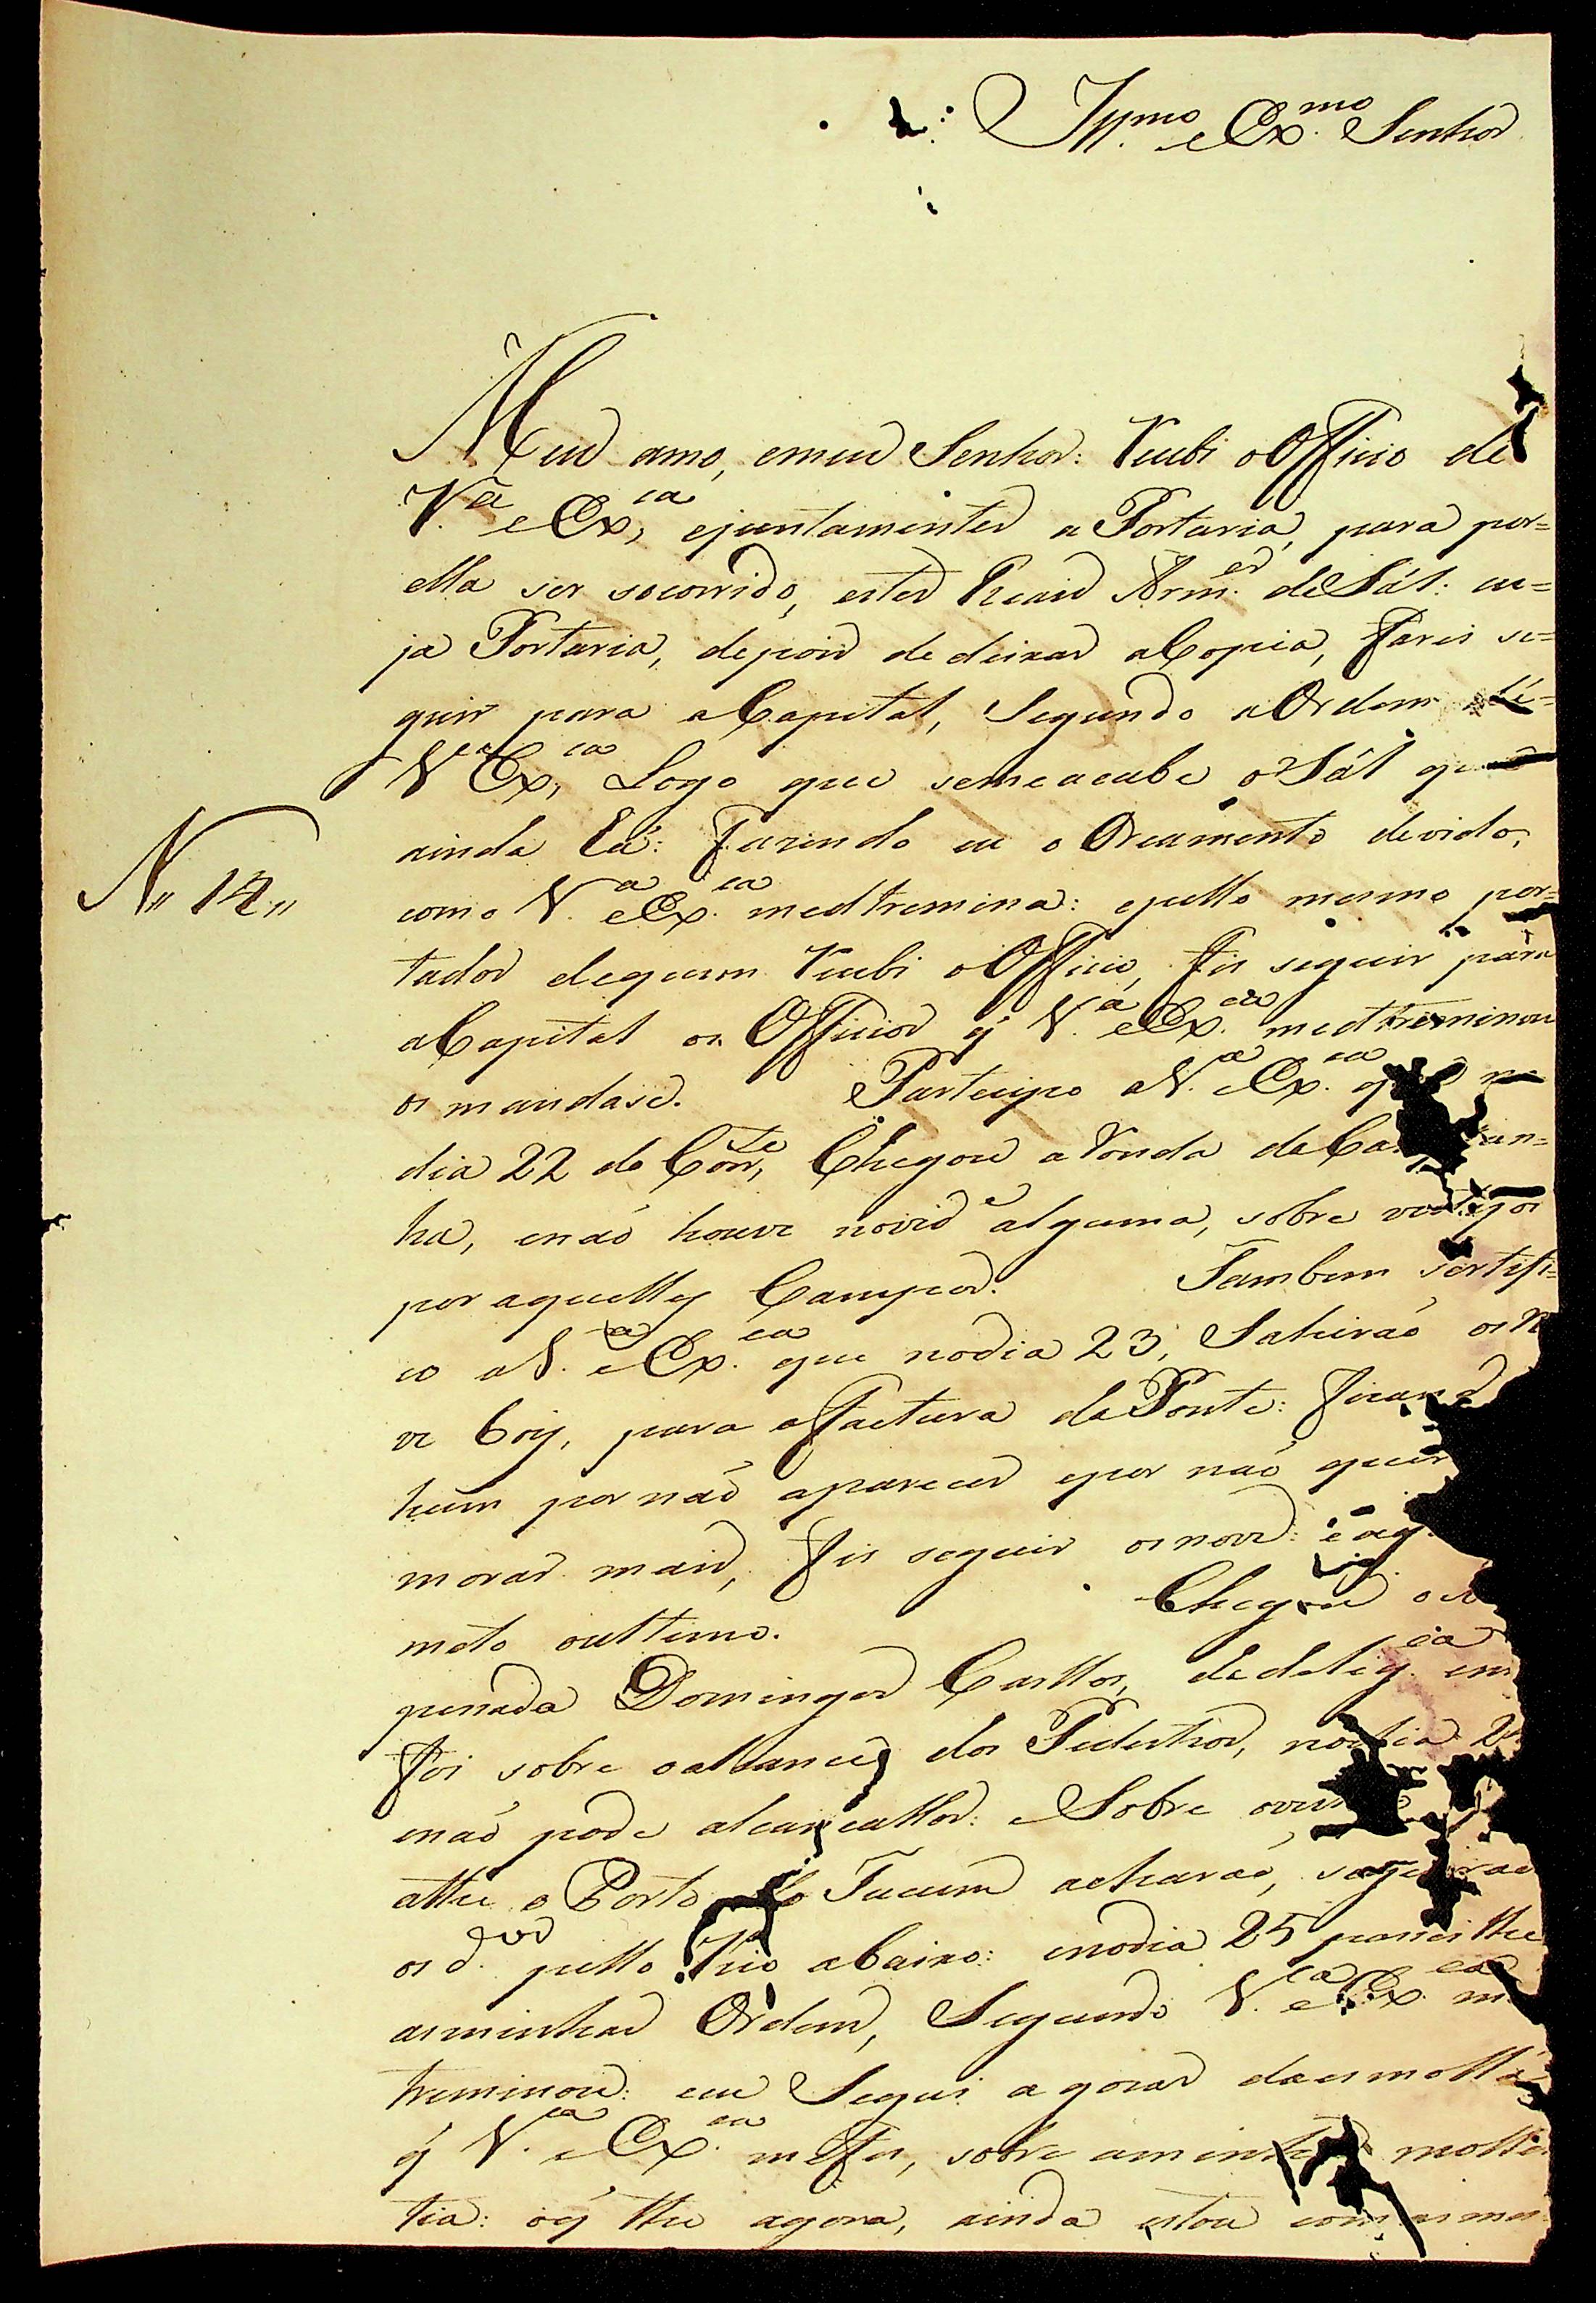 Ill.mo e Ex.mo Senhor
Meu amo, emeu Senhor: Recebi o Officio de
V.a Ex.ca, ejuntamente a Portaria, para por=
ella ser socorrido, estes Reais Arm.es de Sál: cu=
ja Portaria, depois de deixar a Copia, fareis se=
guir para a Capital, Segundo a Ordem de=
V.ca Ex.ca, Logo que semeacabe o Sál que
ainda há: fazendo eu o Orcamento devido,
como V.a Ex.ca medtremina: epello mesmo por=
N,, 12,,
tador dequem Recebi o Officio, fis seguir para
a Capital os Officios q' V.a Ex.ca medtreminou
os mandase. Participo a V.a Ex.ca q no
dia 22 do Corr.te, Chegou a Ronda de Ca an=
ha, enaó houve novid.e alguma, sobre vestigos
por aquelles Campos. Tambem sertifi=
co a V.a Ex.ca que nodia 23, Sahiraó os N
ve Boiz, para a factura da Ponte: ficand
hum pornaó aparecer epor naó quer
morar mais, fis seguir os nove: e aq
meto oultimo. Chegou o
penada Domingos Carllos, de delig.ca em
foi sobre oalcance dos Pedestres, nodia 2
enaó pode alcancallos: e Sobre
athe o Porto do Tucum acharaó, seguiraó
os d.os pello Rio abaixo: enodia 25 paseilhe
asminhas Ordens, Segundo V.ca Ex.ca m
treminou: eu Segui agozar daesmolla
q' V.ca Ex.ca mefes, sobre aminha molles
tia: oq' the agora, ainda estou com asmes